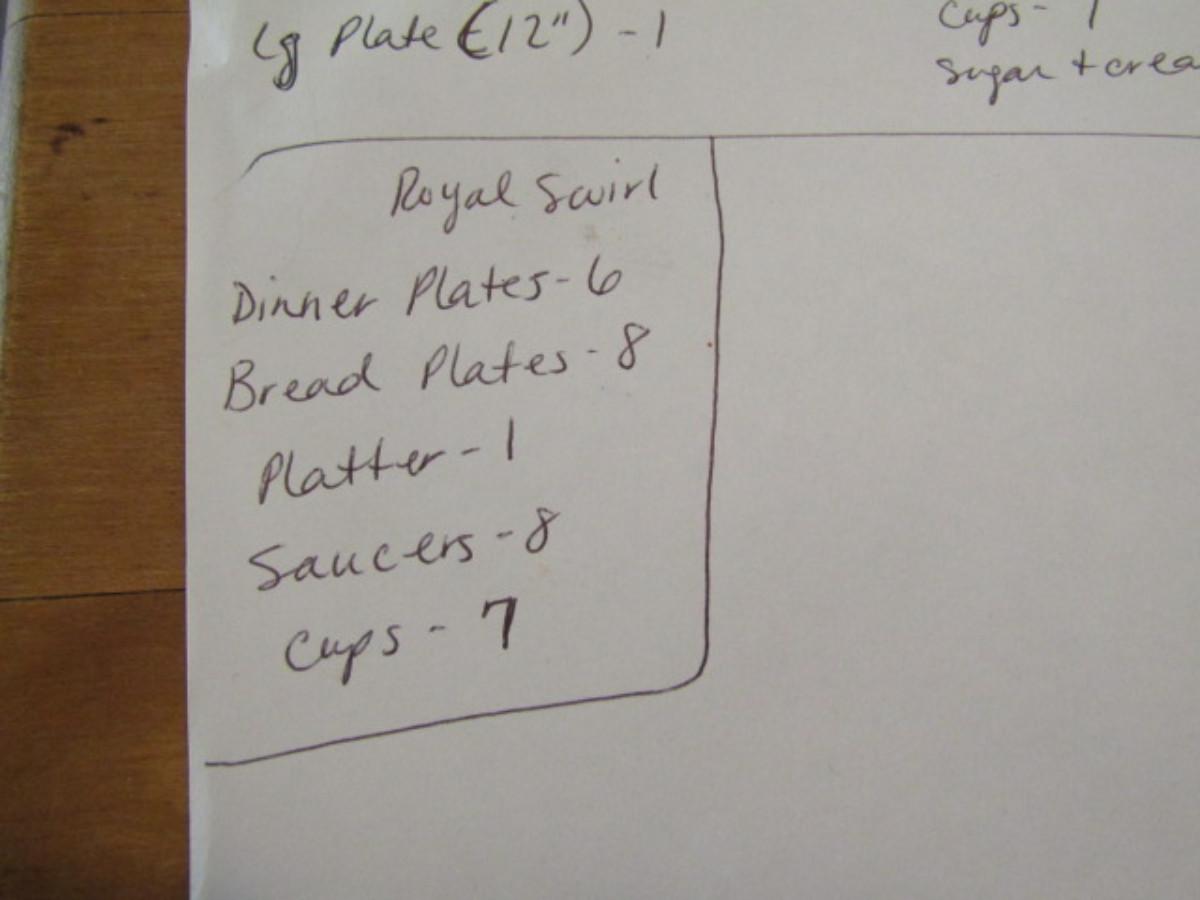 Lg Plate (12") - 1
Cups -
Sugar +
Royal Swirl
Dinner Plates - 6
Bread Plates - 8
Platter - 1
Saucers - 8
Cups - 7